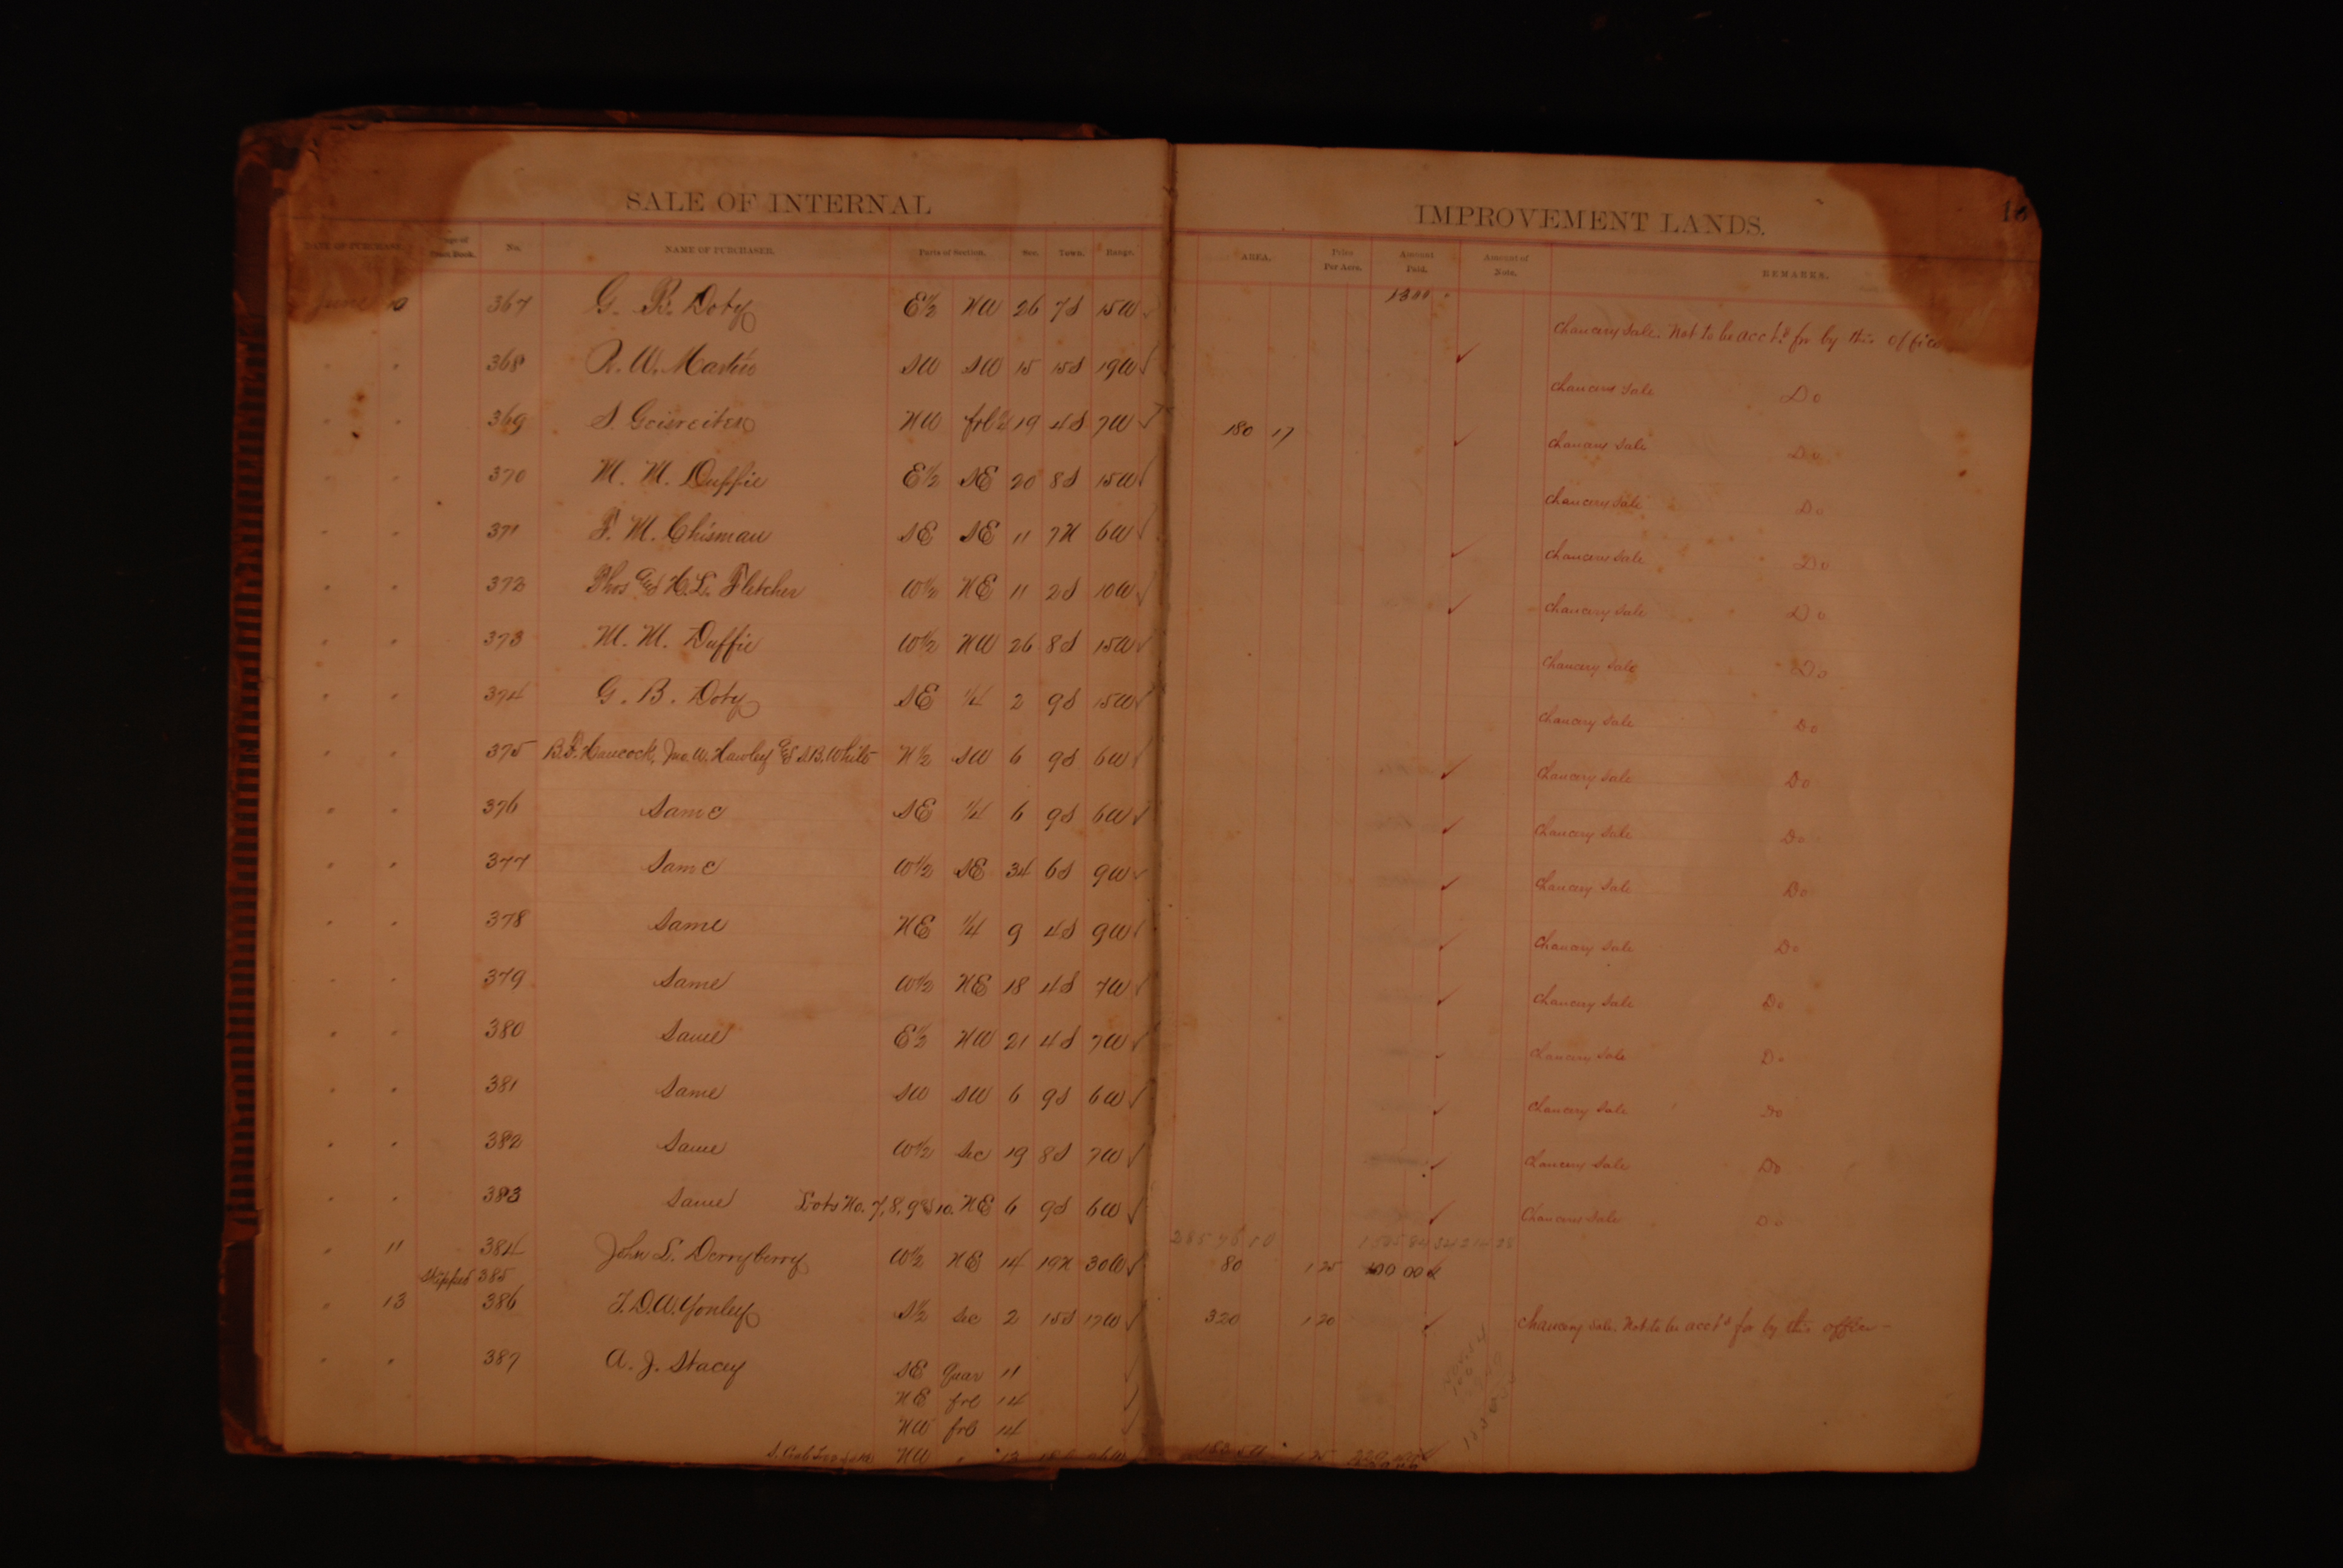 SALE OF INTERNAL IMPROVEMENT LANDS. 
DATE OF PURCHASE. No. NAME OF PURCHASER. Parts of Section. Sec. Town. Range. AREA. Price Per Acre. Amount Paid. Amount of Note. REMARKS.
June 10 367 G. B. Doty E½ NW 26 7S 15W 1300 Chancery Sale. Not to be acct.d for by this office
" " 368 R. W. Martin SW SW 15 15S 19W ✓ Chancery Sale Do
" " 369 S. Geisreiter NW frl ¼ 19 4S 7W 180 17 ✓ Chancery Sale Do
" " 370 M. M. Duffie E½ SE 20 8S 15W Chancery Sale Do
" " 371 F. M. Chisman SE SE 11 7N 6W ✓ Chancery Sale Do
" " 372 Thos & H. L. Fletcher W½ NE 11 2S 10W ✓ Chancery Sale Do
" " 373 M. M. Duffie W½ NW 26 8S 15W ✓ Chancery Sale Do
" " 374 G. B. Doty SE ¼ 2 9S 15W ✓ Chancery Sale Do
" " 375 B. F. Hancock, Jno. W. Hawley & S. B. White N½ SW 6 9S 6W ✓ Chancery Sale Do
" " 376 Same SE ¼ 6 9S 6W ✓ ✓ Chancery Sale Do
" " 377 Same W½ SE 34 6S 9W ✓ ✓ Chancery Sale Do
" " 378 Same NE ¼ 9 4S 9W ✓ ✓ Chancery Sale Do
" " 379 Same W½ NE 18 4S 7W ✓ ✓ Chancery Sale Do
" " 380 Same E½ NW 21 4S 7W ✓ ✓ Chancery Sale Do
" " 381 Same SW SW 6 9S 6W ✓ ✓ Chancery Sale Do
" " 382 Same W½ Sec 19 8S 7W ✓ ✓ Chancery Sale Do
" " 383 Same Lots No. 7, 8, 9 & 10. NE 6 9S 6W ✓ ✓ Chancery Sale Do
" 11 384 John L. Derryberry W½ NE 14 19N 30W ✓ 80 1 25 100 00
Skipped 385
" 13 386 J. D. W. Yonley S½ Sec 2 15S 17W ✓ 320 1 20 ✓ Chancery Sale. Not to be acct.d for by this office
" " 387 A. J. Stacey SE Quar 11
NE frl 14
NW frl 14
NW " 13